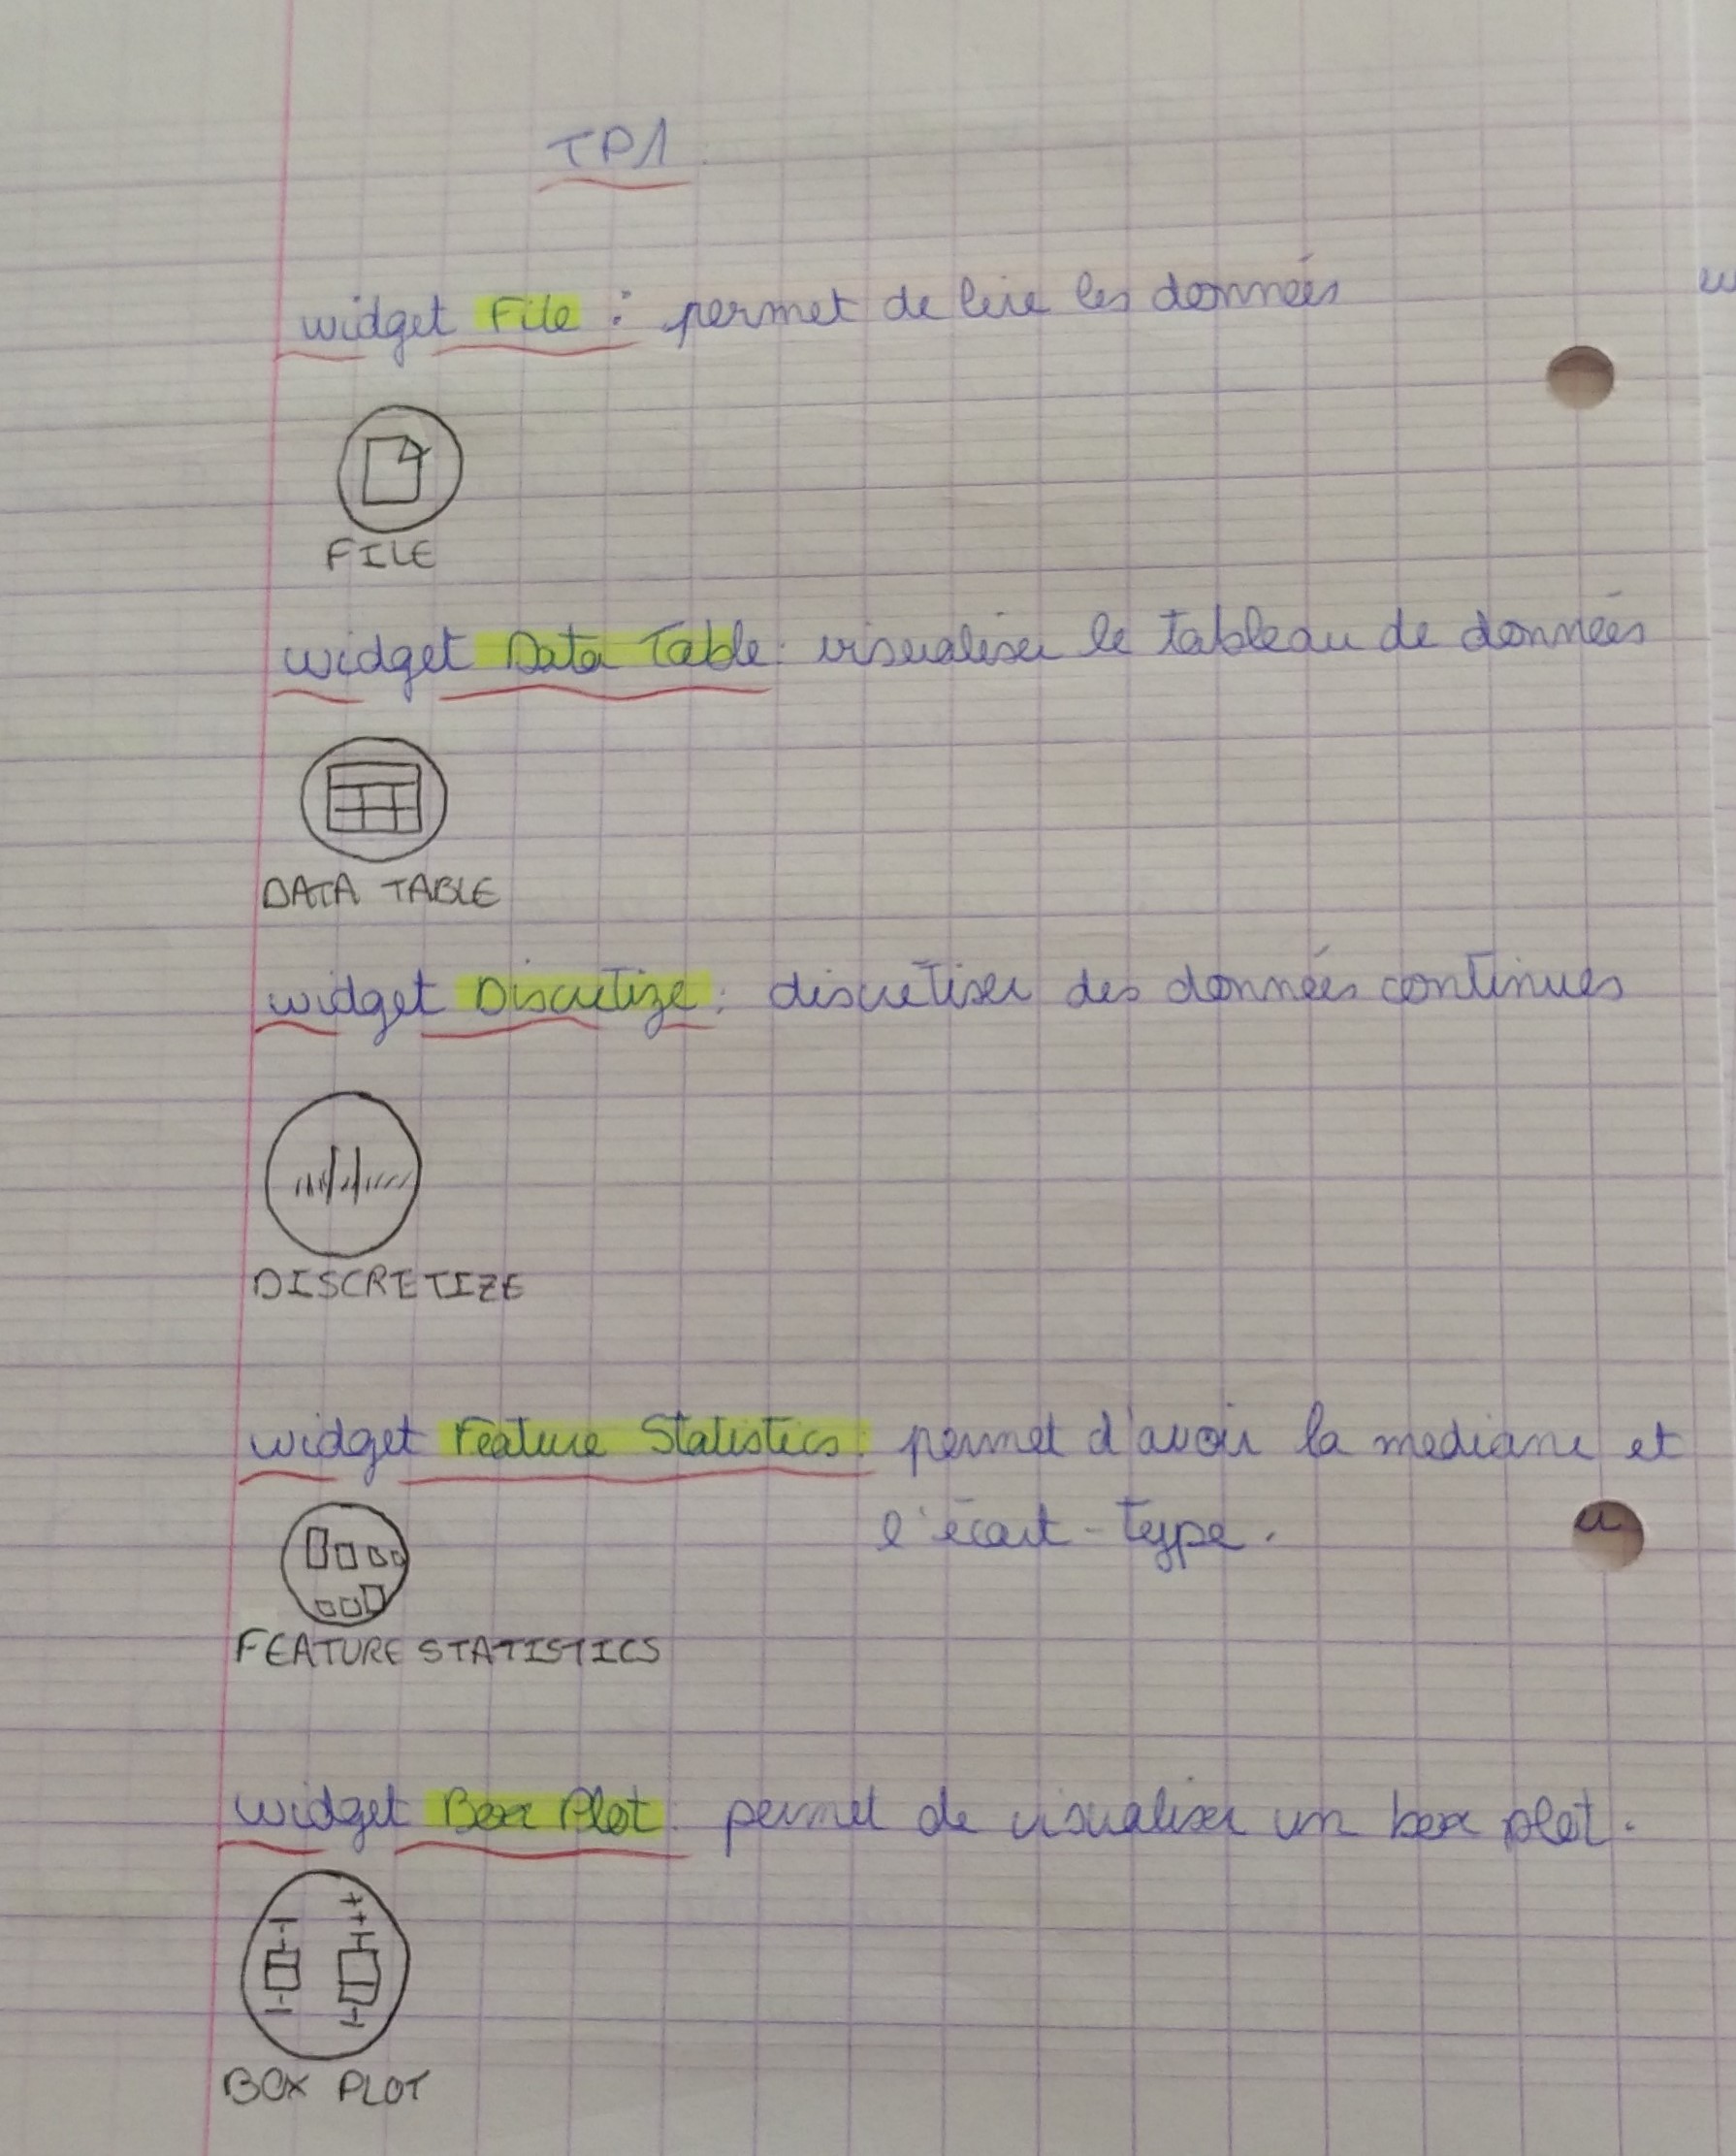 TP1
widget File : permet de lire les données
FILE
widget Data Table : visualiser le tableau de données
DATA TABLE
widget Discretize : discrétiser des données continues
DISCRETIZE
widget Feature Statistics : permet d'avoir la mediane et
l'écart-type.
FEATURE STATISTICS
widget Box Plot : permet de visualiser un box plot.
BOX PLOT